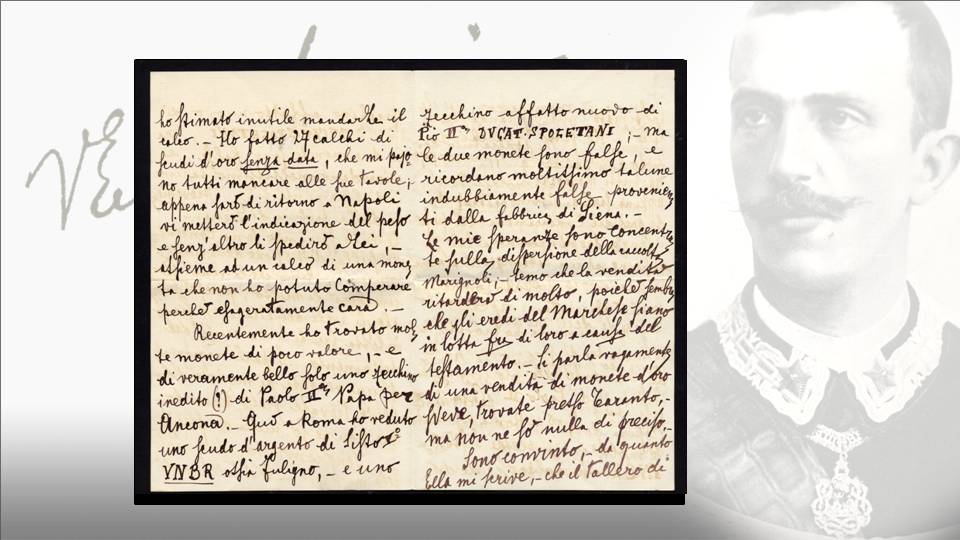 ho stimato inutile mandarLe il
calco. – Ho fatto 27 calchi di
scudi d'oro senza data, che mi pajo-
no tutti mancare alle sue tavole;
appena farò di ritorno a Napoli
vi metterò l'indicazione del peso
e senz'altro li spedirò a Lei, –
assieme ad un calco di una mone
ta che non ho potuto comperare
perché esageratamente cara. –
Recentemente ho trovato mol
te monete di poco valore, – e
di veramente bello solo uno zecchino
inedito (?) di Paolo II° Papa per
Ancona. – Qui a Roma ho veduto
uno scudo d'argento di Sisto V°
VNBR ossia Fuligno, – e uno
zecchino affatto nuovo di
Pio II° DVCAT·SPOLETANI; – ma
le due monete sono false, e
ricordano moltissimo talune
indubbiamente false provenien
ti dalla fabbrica di Siena. –
Le mie speranze sono concentra
te sulla dispersione della raccolta
Marignoli, – temo che la vendita
ritarderà di molto, poiché sembra
che gli eredi del Marchese siano
in lotta fra di loro a causa del
testamento. – Si parla vagamente
di una vendita di monete d'oro
Sveve, trovate presso Taranto, –
ma non ne so nulla di preciso. –
Sono convinto, – da quanto
Ella mi scrive, – che il tallero di